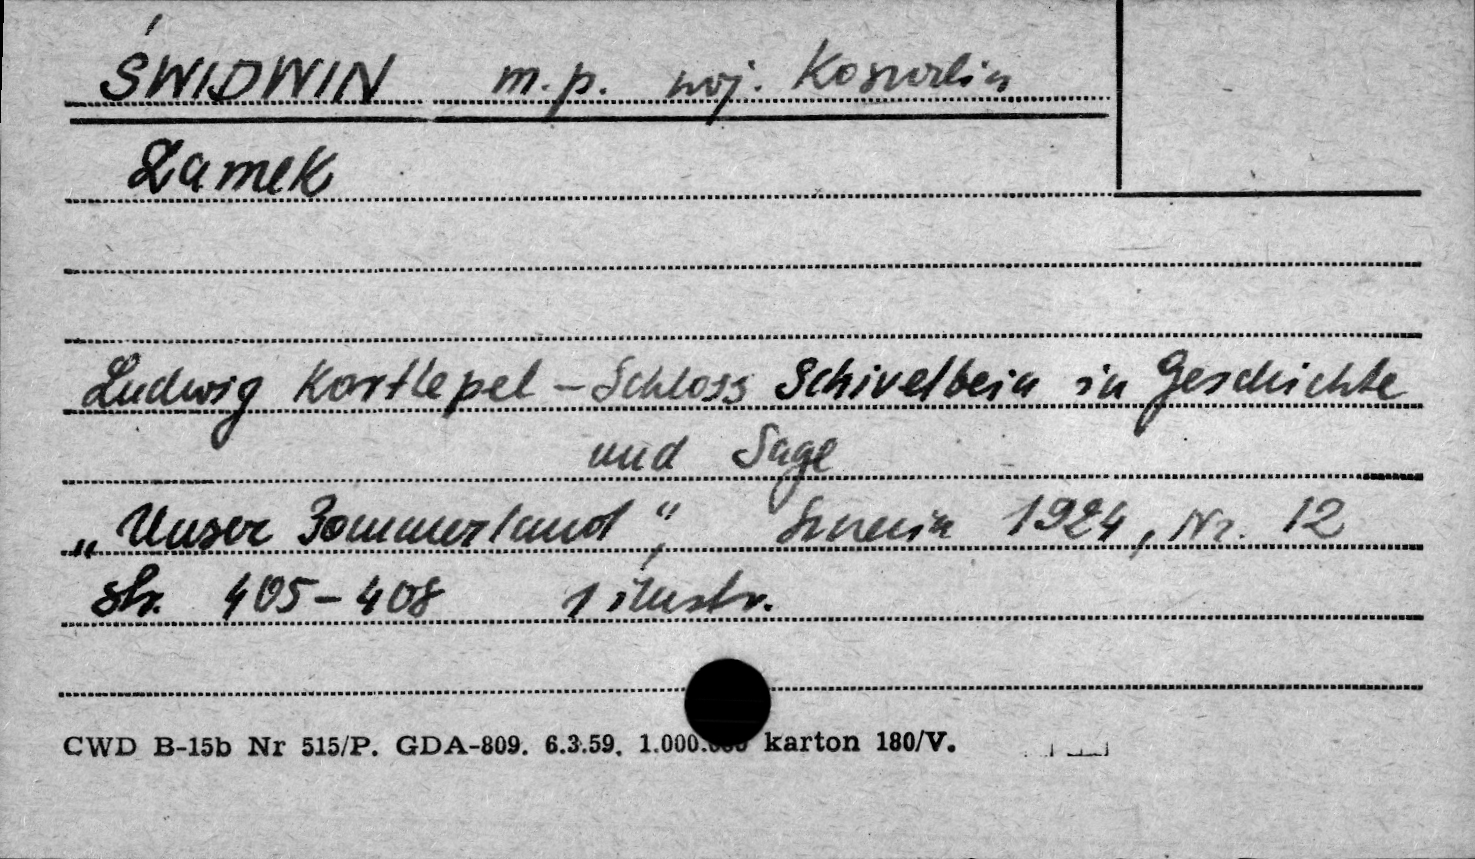 ŚWIDWIN m.p. woj. Koszalin
Zamek
Ludwig Kortlepel – Schloss Schivelbein in Geschichte
und Sage
„Unser Pommerland", Szczecin 1924, Nr. 12
str. 405–408 1 ilustr.
CWD B-15b Nr 515/P. GDA-809. 6.3.59. 1.000.000 karton 180/V.